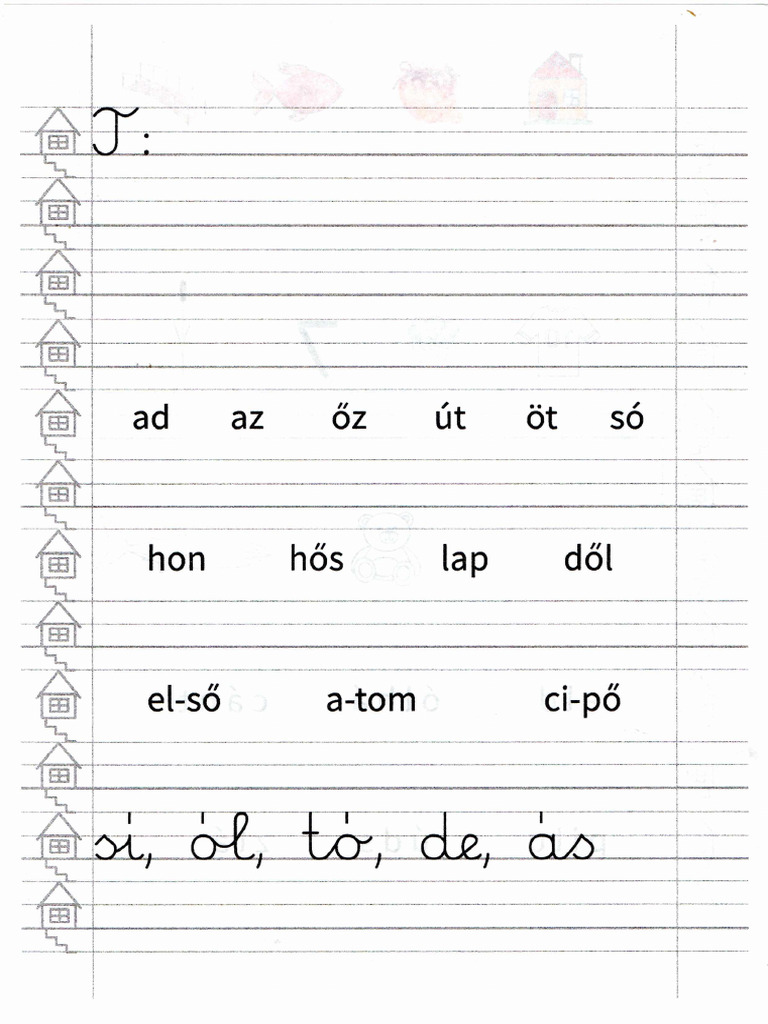 T:
ad az őz út öt só
hon hős lap dől
el-ső a-tom ci-pő
sí, ól, tó, de, ás